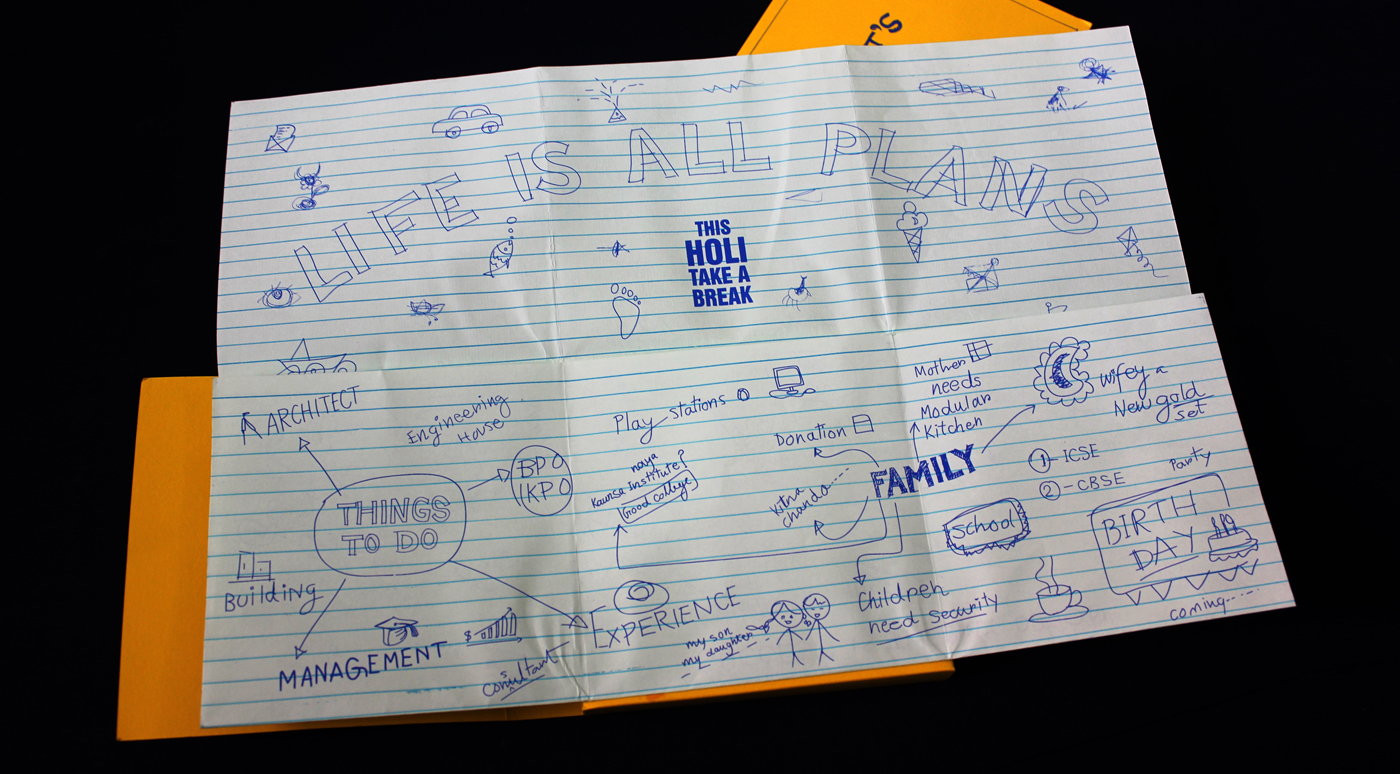 T'S
LIFE IS ALL PLANS
THIS
HOLI
TAKE A
BREAK
ARCHITECT
Engineering
House
BPO
KPO
THINGS
TO DO
Building
MANAGEMENT
$
Consultant
EXPERIENCE
Play stations
naya
Kaunsa institute?
Good college
Donation
Kitna
chanda.....
FAMILY
Mother
needs
Modular
Kitchen
wifey a
New gold
set
1 - ICSE
2 - CBSE
School
Party
BIRTH
DAY
coming.....
Children
need security
my son
my daughter